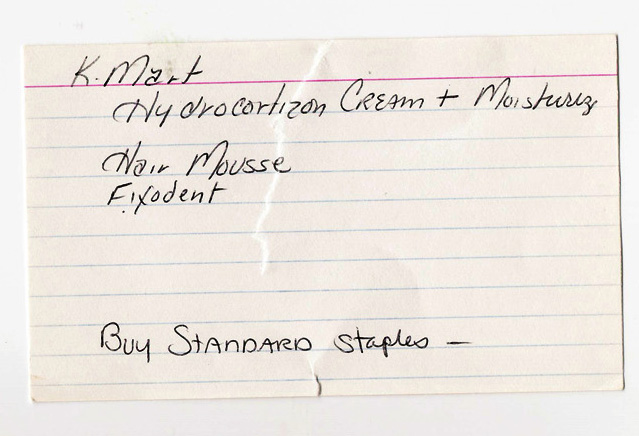 K-Mart
Hydrocortizon CREAM + Moisturiz
Hair Mousse
Fixodent
Buy STANDARD staples —